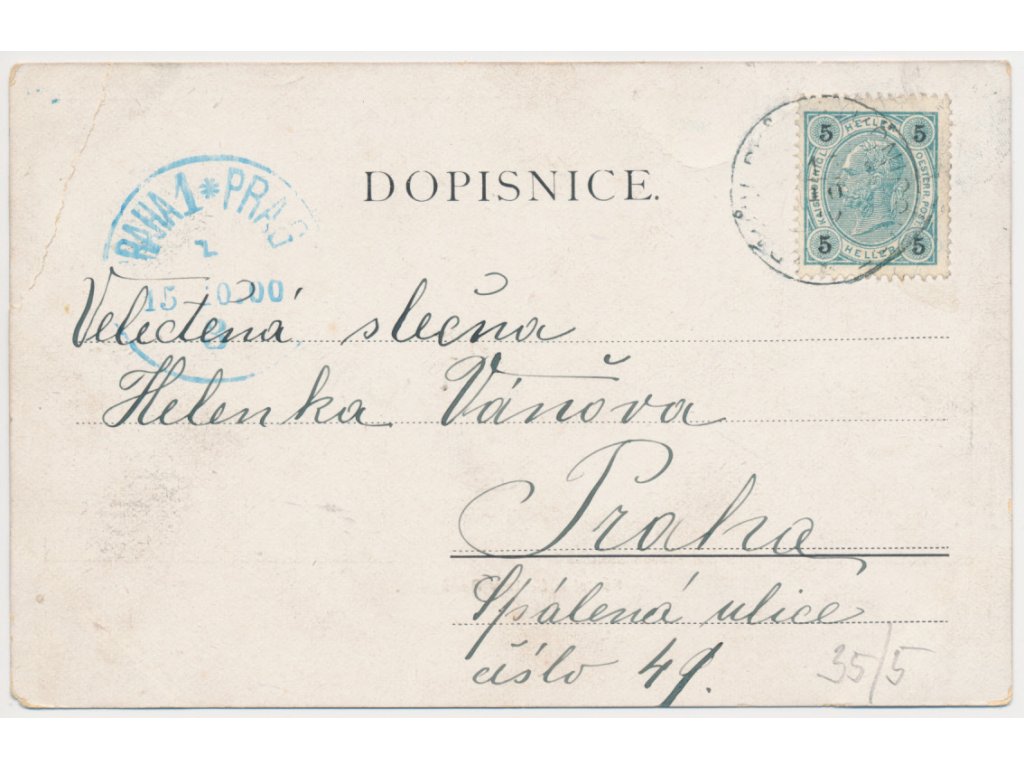 DOPISNICE.
5 HELLER 5
KAIS. KÖNIGL.
OESTERR. POST
5 HELLER 5
PRAHA 1 * PRAG
15 10 00
Velectěná slečna
Helenka Váňova
Praha
Spálená ulice
číslo 49.
35/5